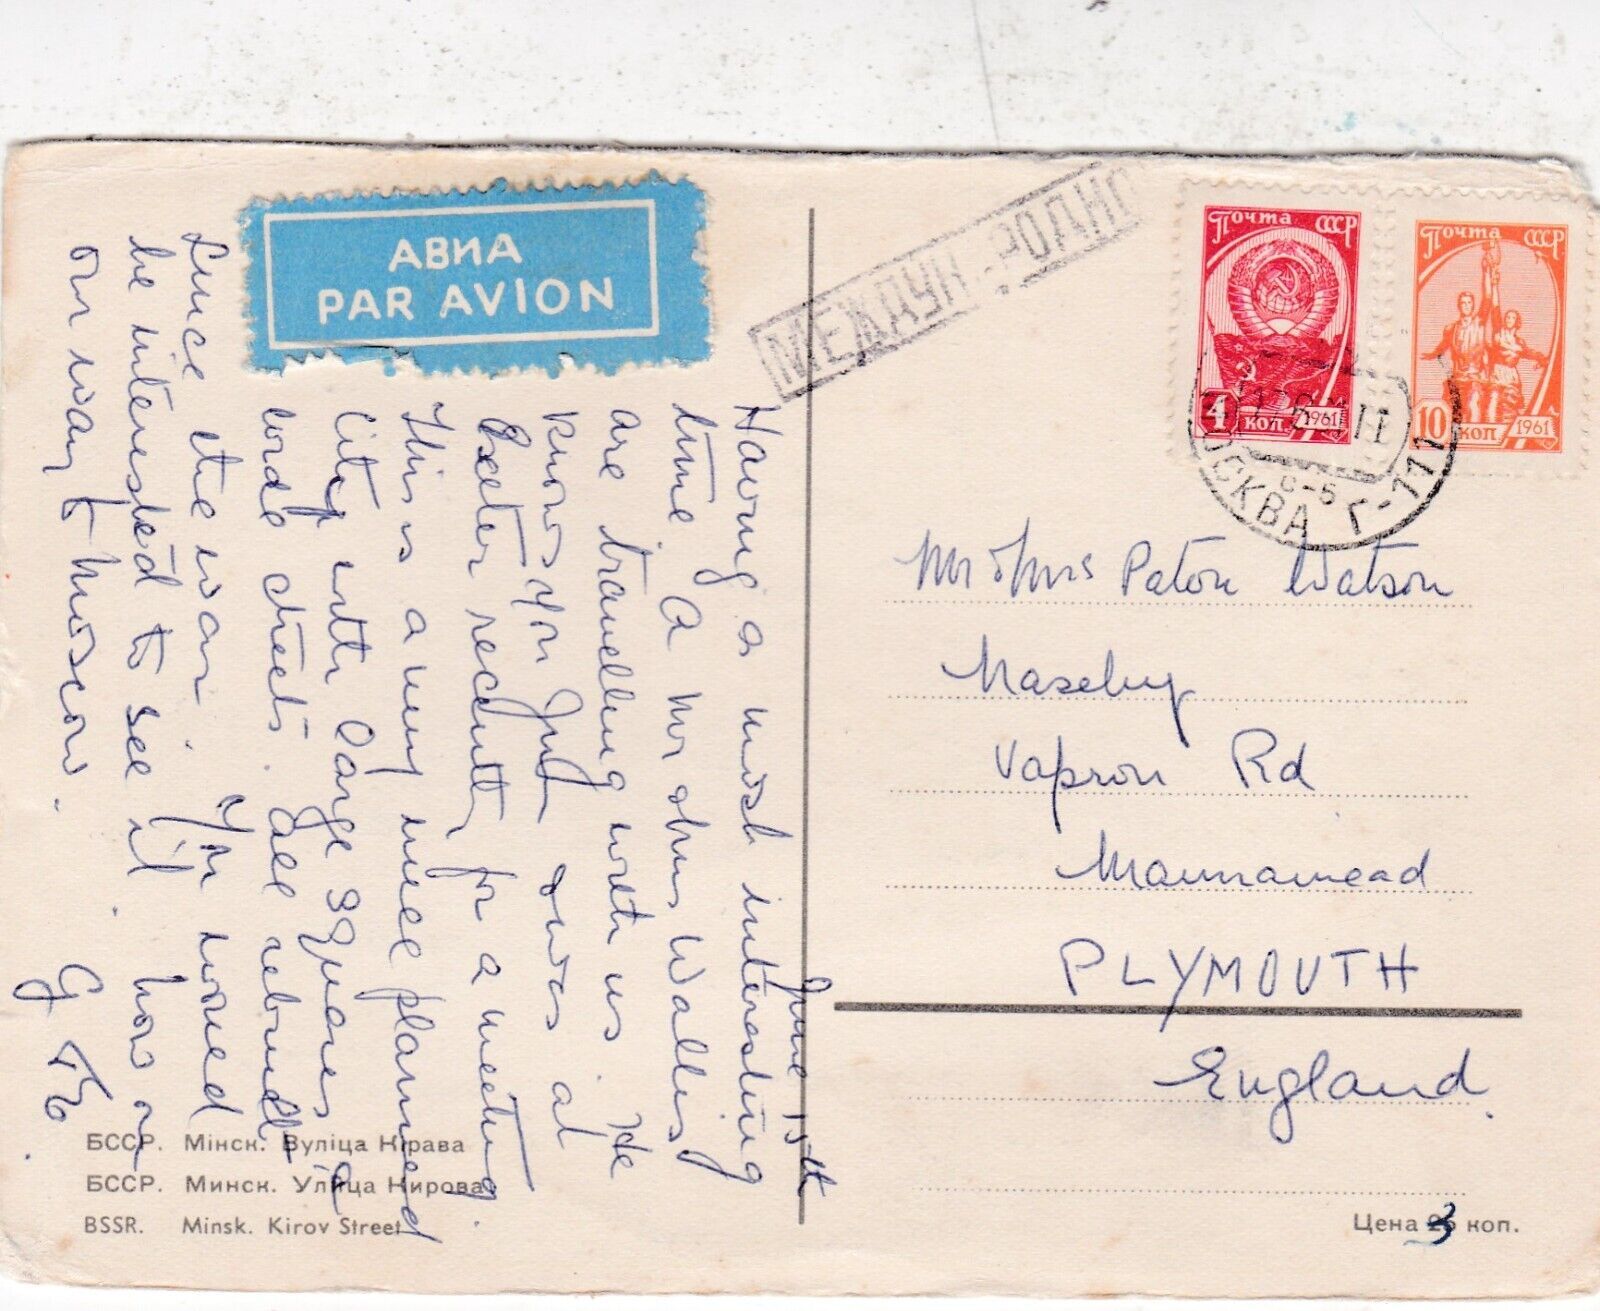 АВИА
PAR AVION
МЕЖДУН РОДНО
Почта СССР
4 коп. 1961
Почта СССР
10 коп 1961
МОСКВА
June 15th
Having a most interesting
time A Mr Wallis
are travelling with us He
knows yr and was at
Exeter recently for a meeting.
This is a very nice planned
City with large squares &
wide streets. All rebuilt
since the war. Yr
be interested to see it. now on
our way to Moscow.
G
Mr & Mrs Paton Watson
Naseby
Vapron Rd
Mannamead
PLYMOUTH
England.
БССР. Мінск. Вуліца Кірава
БССР. Минск. Улица Кирова
BSSR. Minsk. Kirov Street
Цена 3 коп.